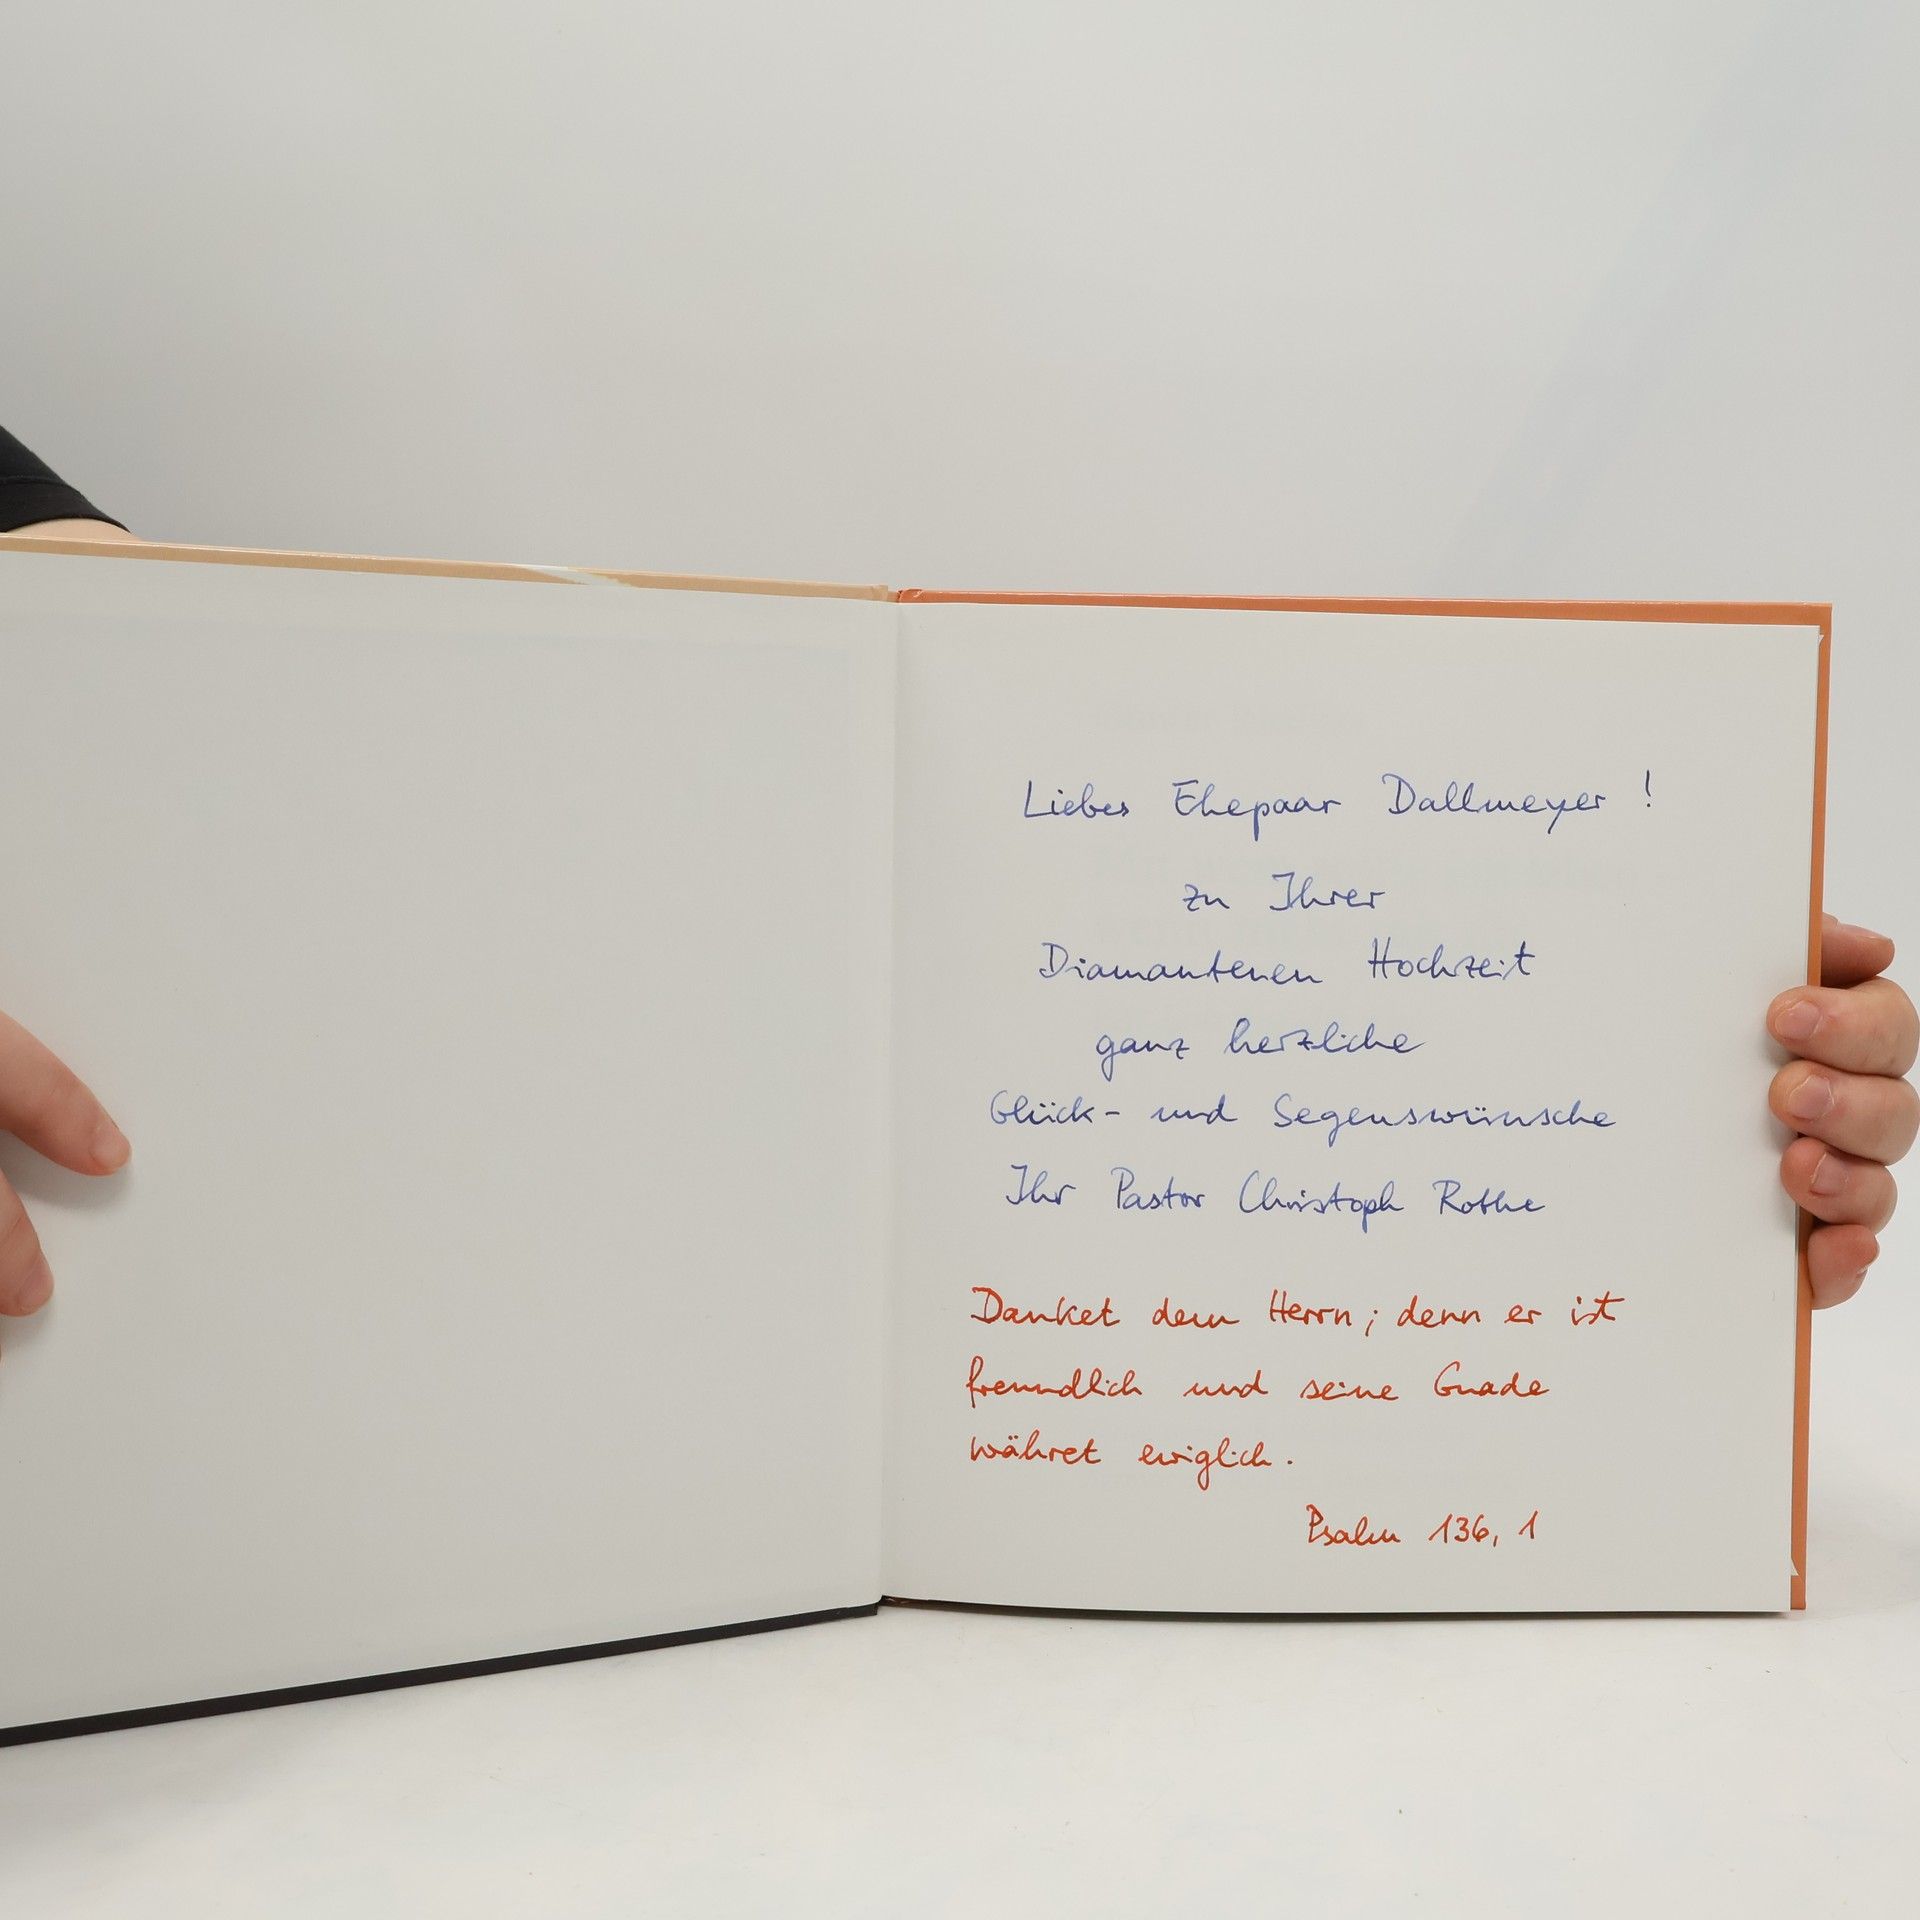 Liebes Ehepaar Dallmeyer !
zu Ihrer
Diamantenen Hochzeit
ganz herzliche
Glück- und Segenswünsche
Ihr Pastor Christoph Rothe
Danket dem Herrn; denn er ist
freundlich und seine Gnade
währet ewiglich.
Psalm 136, 1